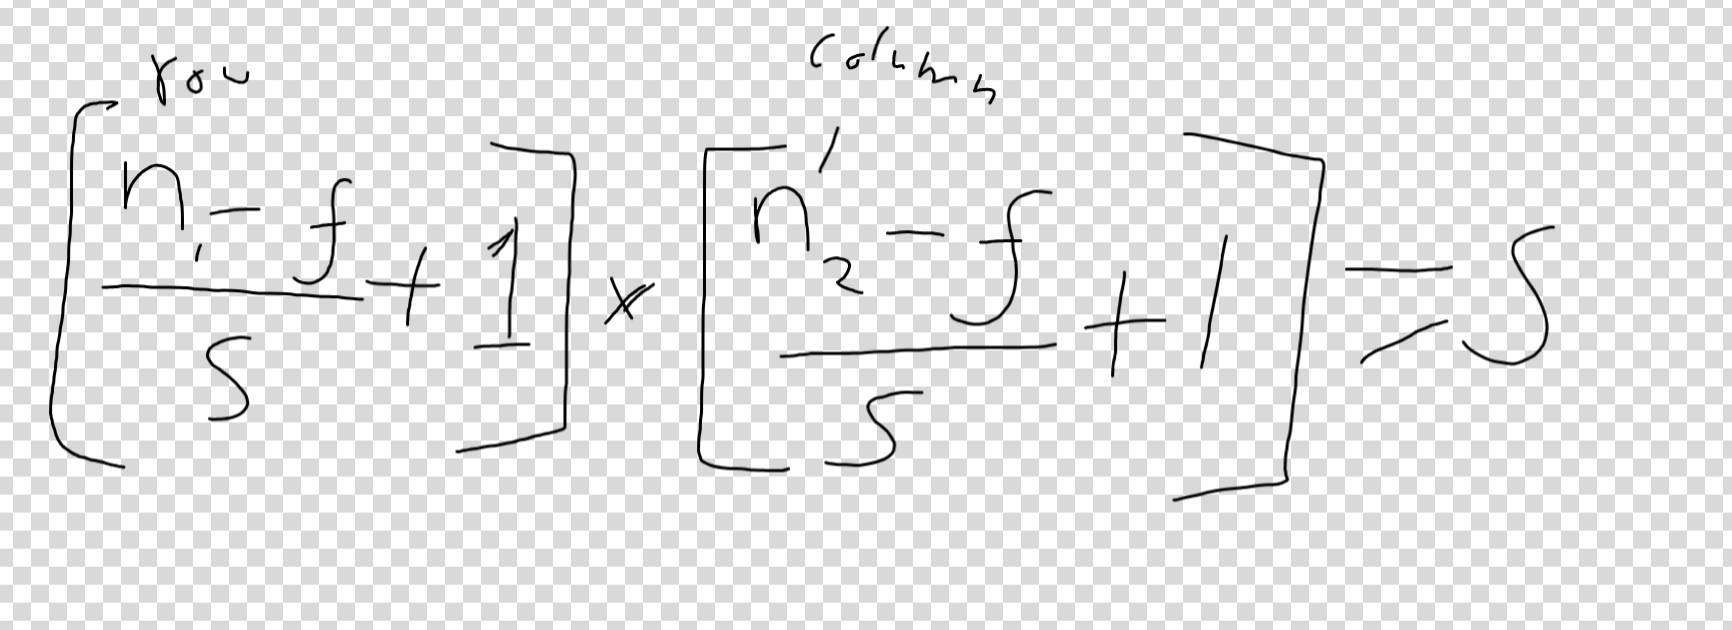 row column
[n₁ - f / s + 1] × [n₂' - f / s + 1] = s